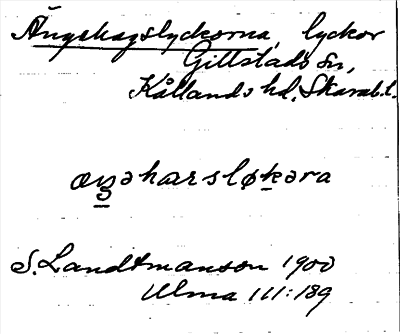 Ängahagslyckorna, lyckor
Gillstads sn,
Kållands hd, Skarab.l.
S. Landtmanson 1900
Ulma 111:189